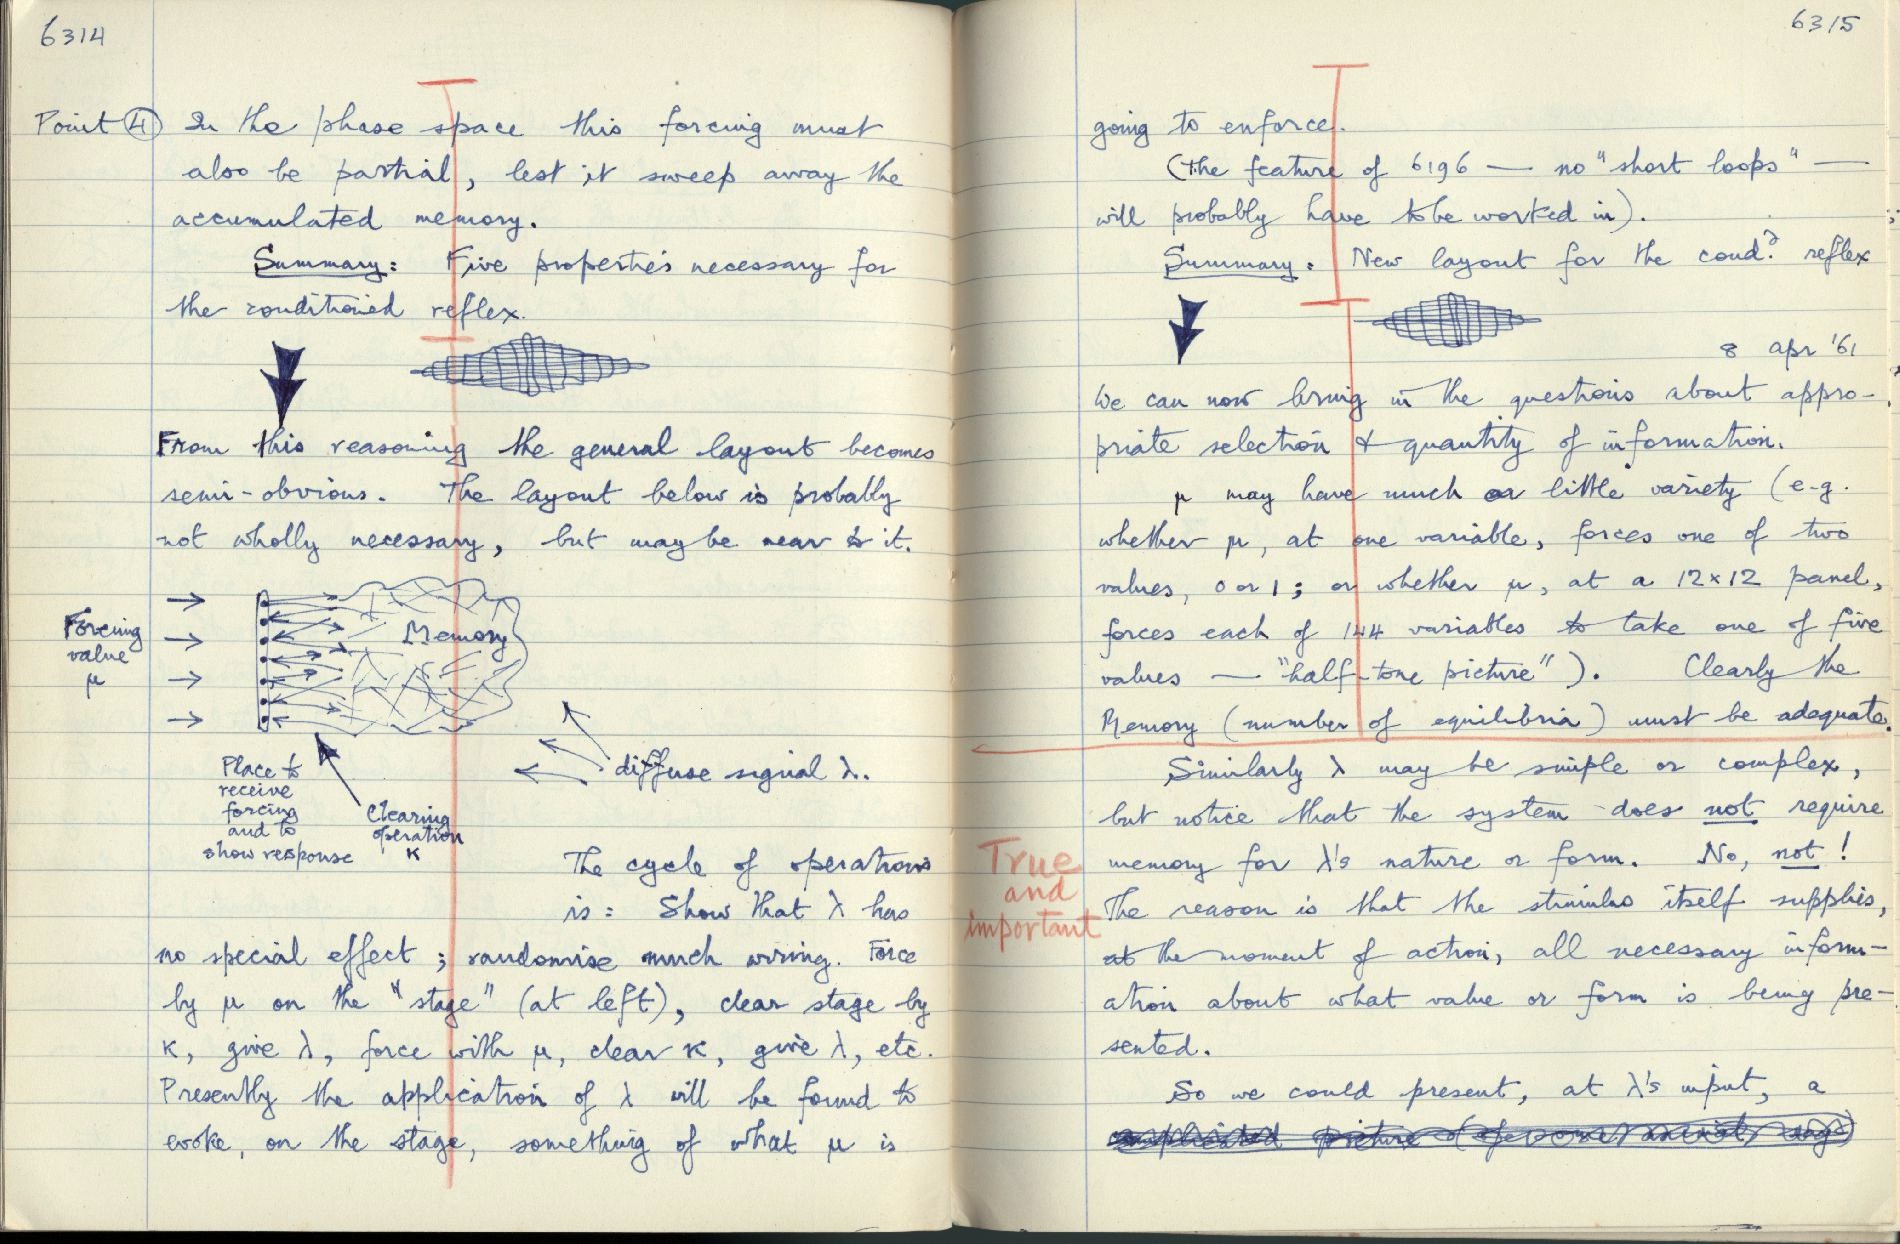 6314
Point ④ In the phase space this forcing must
also be partial, lest it sweep away the
accumulated memory.
Summary: Five properties necessary for
the conditioned reflex.
From this reasoning the general layout becomes
semi-obvious. The layout below is probably
not wholly necessary, but may be near to it.
Forcing
value
μ
Memory
diffuse signal λ.
Place to
receive
forcing
and to
show response
Clearing
operation
κ
The cycle of operations
is: Show that λ has
no special effect; randomise much wiring. Force
by μ on the "stage" (at left), clear stage by
κ, give λ, force with μ, clear κ, give λ, etc.
Presently the application of λ will be found to
evoke, on the stage, something of what μ is
6315
going to enforce.
(The feature of 6196 — no "short loops" —
will probably have to be worked in).
Summary: New layout for the condᵈ. reflex
8 apr '61
We can now bring in the questions about appro-
priate selection & quantity of information.
μ may have much or little variety (e.g.
whether μ, at one variable, forces one of two
values, 0 or 1; or whether μ, at a 12×12 panel,
forces each of 144 variables to take one of five
values — "half-tone picture"). Clearly the
Memory (number of equilibria) must be adequate.
Similarly λ may be simple or complex,
but notice that the system does not require
memory for λ's nature or form. No, not!
True
and
important
The reason is that the stimulus itself supplies,
at the moment of action, all necessary inform-
ation about what value or form is being pre-
sented.
So we could present, at λ's input, a
picture